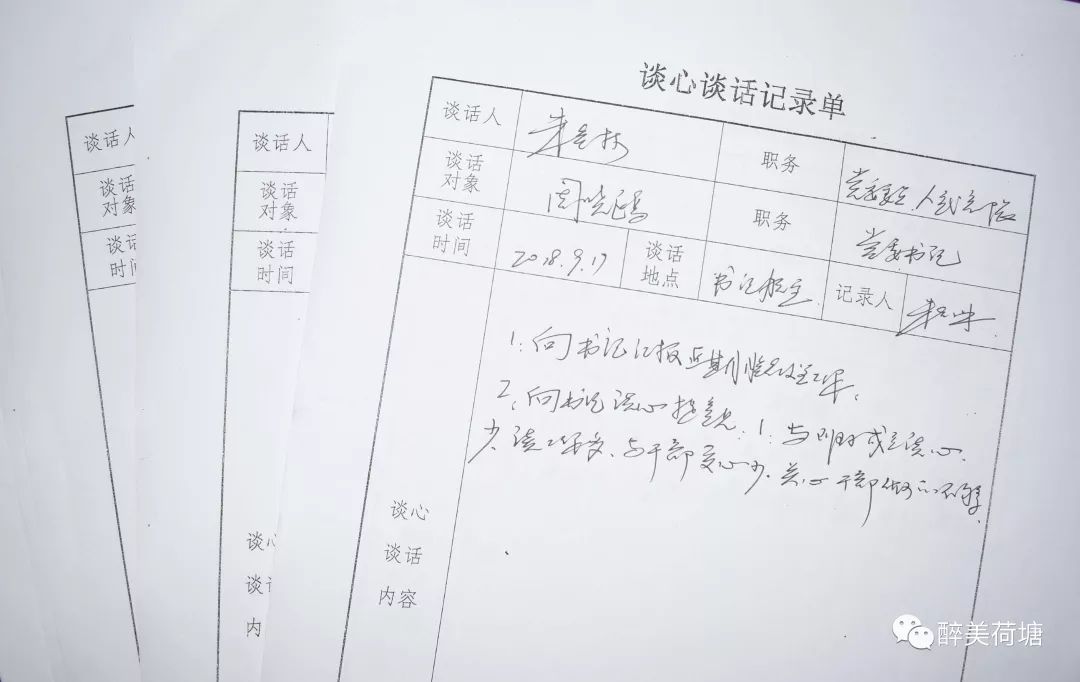 谈心谈话记录单
谈话人 职务 党委委员、人武部长
谈话对象 周晓鸿 职务 党委书记
谈话时间 2018.9.17 谈话地点 书记办公室 记录人
1、向书记汇报近期
2、向书记谈心提意见：1、与 谈心
少、谈工作多、与干部交心少、关心干部做的不够。
谈心
谈话
内容
谈话人
谈话
对象
谈话
时间
谈话人
谈话
对象
醉美荷塘